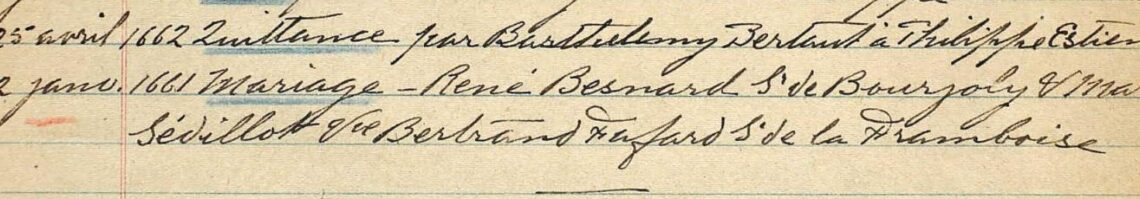 25 avril 1662 Quittance par Barthelemy Bertaut à Philippe Estien
2 janv. 1661 Mariage - René Besnard Sr de Bourjoly & Ma
Sédillot Vve Bertrand Fafard Sr de la Framboise